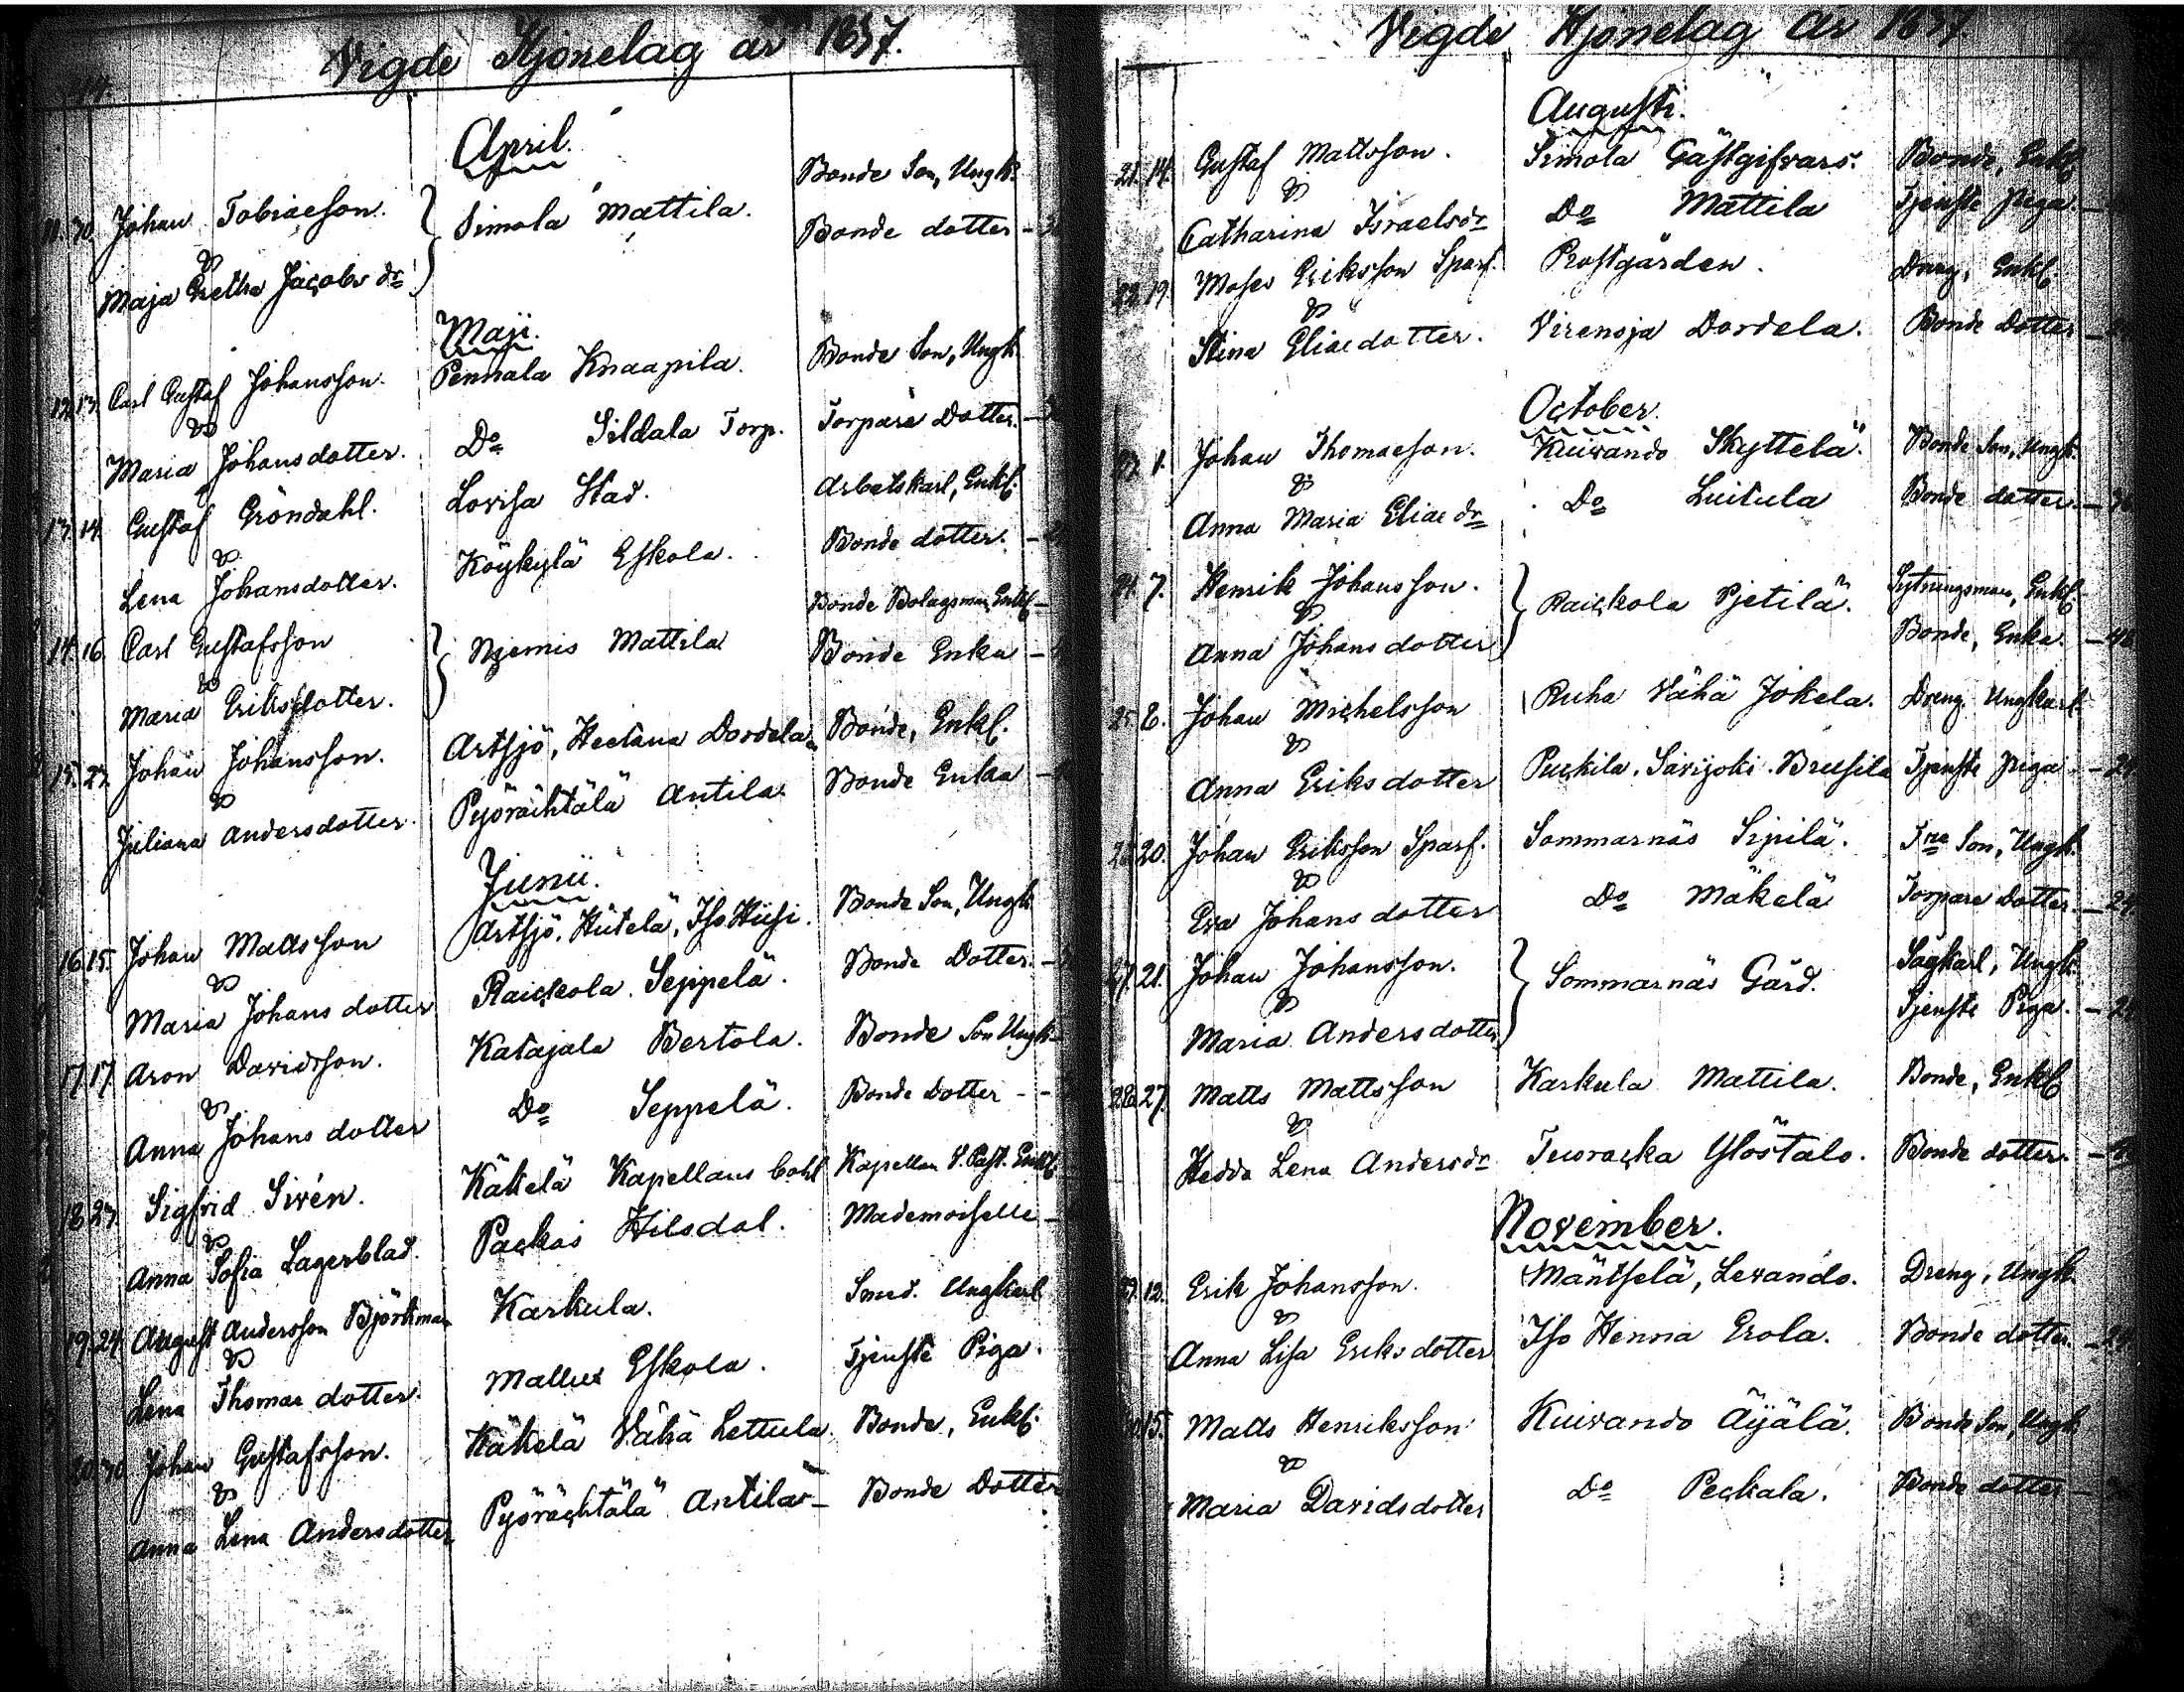 Vigde Hjonelag år 1857.
April.
11. 30. Johan Tobiaeson. Simola Mattila. Bonde Son, Ungk.
&
Maja Gretha Jacobsdr Bonde dotter -
Maji.
12. 13. Carl Gustaf Johansson. Pennala Knaapila. Bonde Son, Ungk.
&
Maria Johansdotter. Do Sildala Torp. Torpare Dotter. -
13. 14. Gustaf Gröndahl. Lovisa Stad. Arbetskarl, Enkl.
&
Lena Johansdotter. Köykylä Eskola. Bonde dotter. -
14. 16. Carl Gustafsson Njemis Mattila Bonde Bolagsman, Enkl.
&
Maria Eriksdotter. Bonde Enka -
15. 23. Johan Johansson. Artsjö, Heetana Dordela Bonde, Enkl.
&
Juliana Andersdotter. Pyörähtälä Antila Bonde Enka -
Junii.
16. 15. Johan Mattsson Artsjö, Hiitelä, Iso Hiisi. Bonde Son, Ungk.
&
Maria Johansdotter Raickola. Seppelä. Bonde Dotter. -
17. 17. Aron Davidsson. Katajala Bertola. Bonde Son Ungk.
&
Anna Johansdotter Do Seppelä. Bonde Dotter -
18. 23. Sigfrid Sirén. Käkelä Kapellans bohl Kapellan V. Past. Enkl.
&
Anna Sofia Lagerblad. Packas Hilsdal. Mademoiselle -
19. 24. August Andersson Björkman Karkula. Smed. Ungkarl
&
Lena Thomaedotter. Mallus Eskola. Tjenste Piga.
20. 30. Johan Gustafsson. Käkelä Vähä Lettula. Bonde, Enkl.
&
Anna Lena Andersdotter Pyörächtälä Antila - Bonde Dotter
Vigde Hjonelag år 1857.
Augusti.
21. 14. Gustaf Mattsson. Simola Gästgifvars. Bonde, Enkl.
&
Catharina Israelsdr Do Mattila Tjenste Piga. -
22. 19. Moses Eriksson Sparf. Prostgården. Dreng, Enkl.
&
Stina Eliaedotter. Virensja Dordela. Bonde Dotter -
October.
23. 1. Johan Thomaeson. Kuivando Skyttelä. Bonde Son, Ungk.
&
Anna Maria Eliaedr Do Luitula Bonde dotter. -
24. 7. Henrik Johansson. Raickola Pjetilä. Sytningsman, Enkl.
&
Anna Johansdotter Bonde, Enka. -
25. 8. Johan Michelsson Ruha Vähä Jokela. Dreng Ungkarl.
&
Anna Eriksdotter Puckila. Särijoki. Brusila Tjenste Piga. -
26. 20. Johan Eriksson Sparf. Sommarnäs Sipilä. Tre Son, Ungk.
&
Eva Johansdotter Do Mäkelä Torpare Dotter. - 24.
27. 21. Johan Johansson. Sommarnäs Gård. Sågkarl, Ungk.
&
Maria Andersdotter Tjenste Piga. -
28. 27. Matts Mattsson Karkula Mattila. Bonde, Enkl
&
Hedda Lena Andersdr Teuroicka Ylöstalo. Bonde dotter. -
November.
29. 12. Erik Johansson. Mäntselä, Levando. Dreng, Ungk.
&
Anna Lisa Eriksdotter Iso Henna Erola. Bonde dotter. -
15. Matts Henriksson Kuivando Äyälä. Bonde Son, Ungk.
&
Maria Davidsdotter Do Peckala. Bonde dotter -